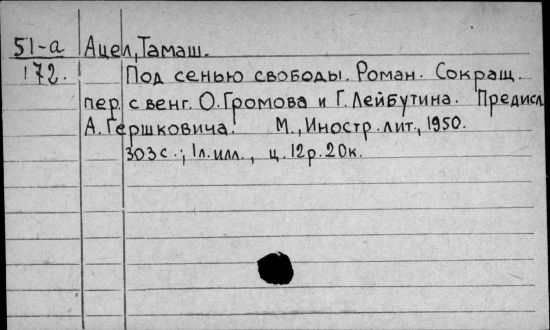 51-а Ацел, Тамаш.
172. Под сенью свободы. Роман. Сокращ.
пер. с венг. О. Громова и Г. Лейбутина. Предисл.
А. Гершковича. М., Иностр. лит., 1950.
303 с.; 1 л. илл., ц. 12 р. 20 к.